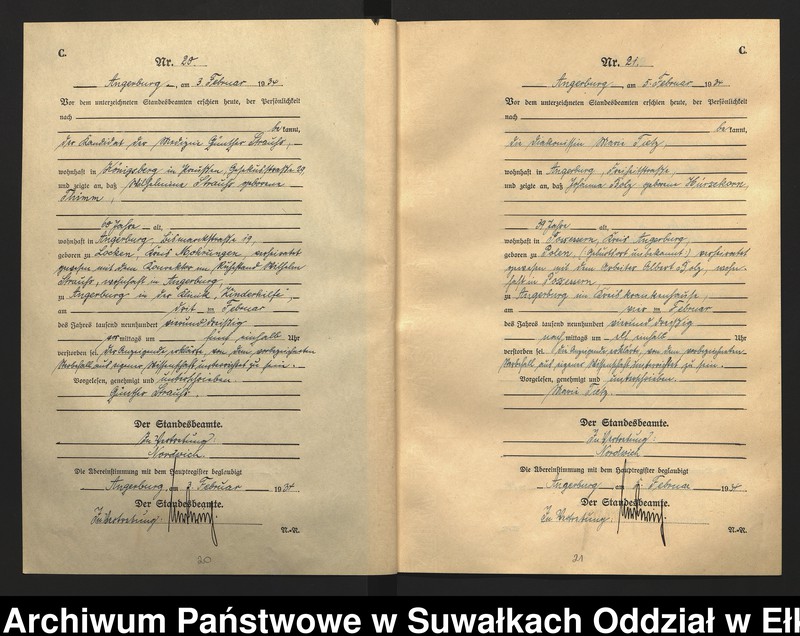 C.
Nr. 20
Angerburg, am 3. Februar 1934
Vor dem unterzeichneten Standesbeamten erschien heute, der Persönlichkeit
nach
be kannt,
der Kandidat der Medizin Günther Strauß,
wohnhaft in Königsberg in Preußen, 29,
und zeigte an, daß Wilhelmine Strauß geborene
Thimm,
60 Jahre alt,
wohnhaft in Angerburg, Bismarckstraße 19,
geboren zu Locken, Kreis Mohrungen, verheiratet
gewesen mit dem Konrektor im Ruhestand Wilhelm
Strauß, wohnhaft in Angerburg
zu Angerburg in der Klinik, Kinderhilfe,
am drei im Februar
des Jahres tausend neunhundert vierunddreißig
vor mittags um fünf einhalb Uhr
verstorben sei. Der Anzeigende erklärte, von dem vorbezeichneten
Sterbefall aus eigener Wissenschaft unterrichtet zu sein.
Vorgelesen, genehmigt und unterschrieben
Günther Strauß.
Der Standesbeamte.
In Vertretung
Nordwich
Die Übereinstimmung mit dem Hauptregister beglaubigt
Angerburg, am 3. Februar 1934
Der Standesbeamte.
In Vertretung:
N.-N.
20
C.
Nr. 21.
Angerburg am 5. Februar 1934
Vor dem unterzeichneten Standesbeamten erschien heute, der Persönlichkeit
nach
be kannt,
die Diakonissin Marie Tietz,
wohnhaft in Angerburg, Freiheitstraße,
und zeigte an, daß Johanna Bolz geborene
39 Jahre alt,
wohnhaft in Possessern, Kreis Angerburg,
geboren zu Polen (Geburtsort unbekannt) verheiratet
gewesen mit dem Arbeiter Albert Bolz, wohn-
haft in Possessern
zu Angerburg im Kreiskrankenhause,
am vier im Februar
des Jahres tausend neunhundert vierunddreißig
nach mittags um elf einhalb Uhr
verstorben sei. Die Anzeigende erklärte, von dem vorbezeichneten
Sterbefall aus eigener Wissenschaft unterrichtet zu sein.
Vorgelesen, genehmigt und unterschrieben.
Marie Tietz.
Der Standesbeamte.
In Vertretung:
Nordwich
Die Übereinstimmung mit dem Hauptregister beglaubigt
Angerburg, am 5. Februar 1934
Der Standesbeamte.
In Vertretung:
N.-N.
21
Archiwum Państwowe w Suwałkach Oddział w Ełk